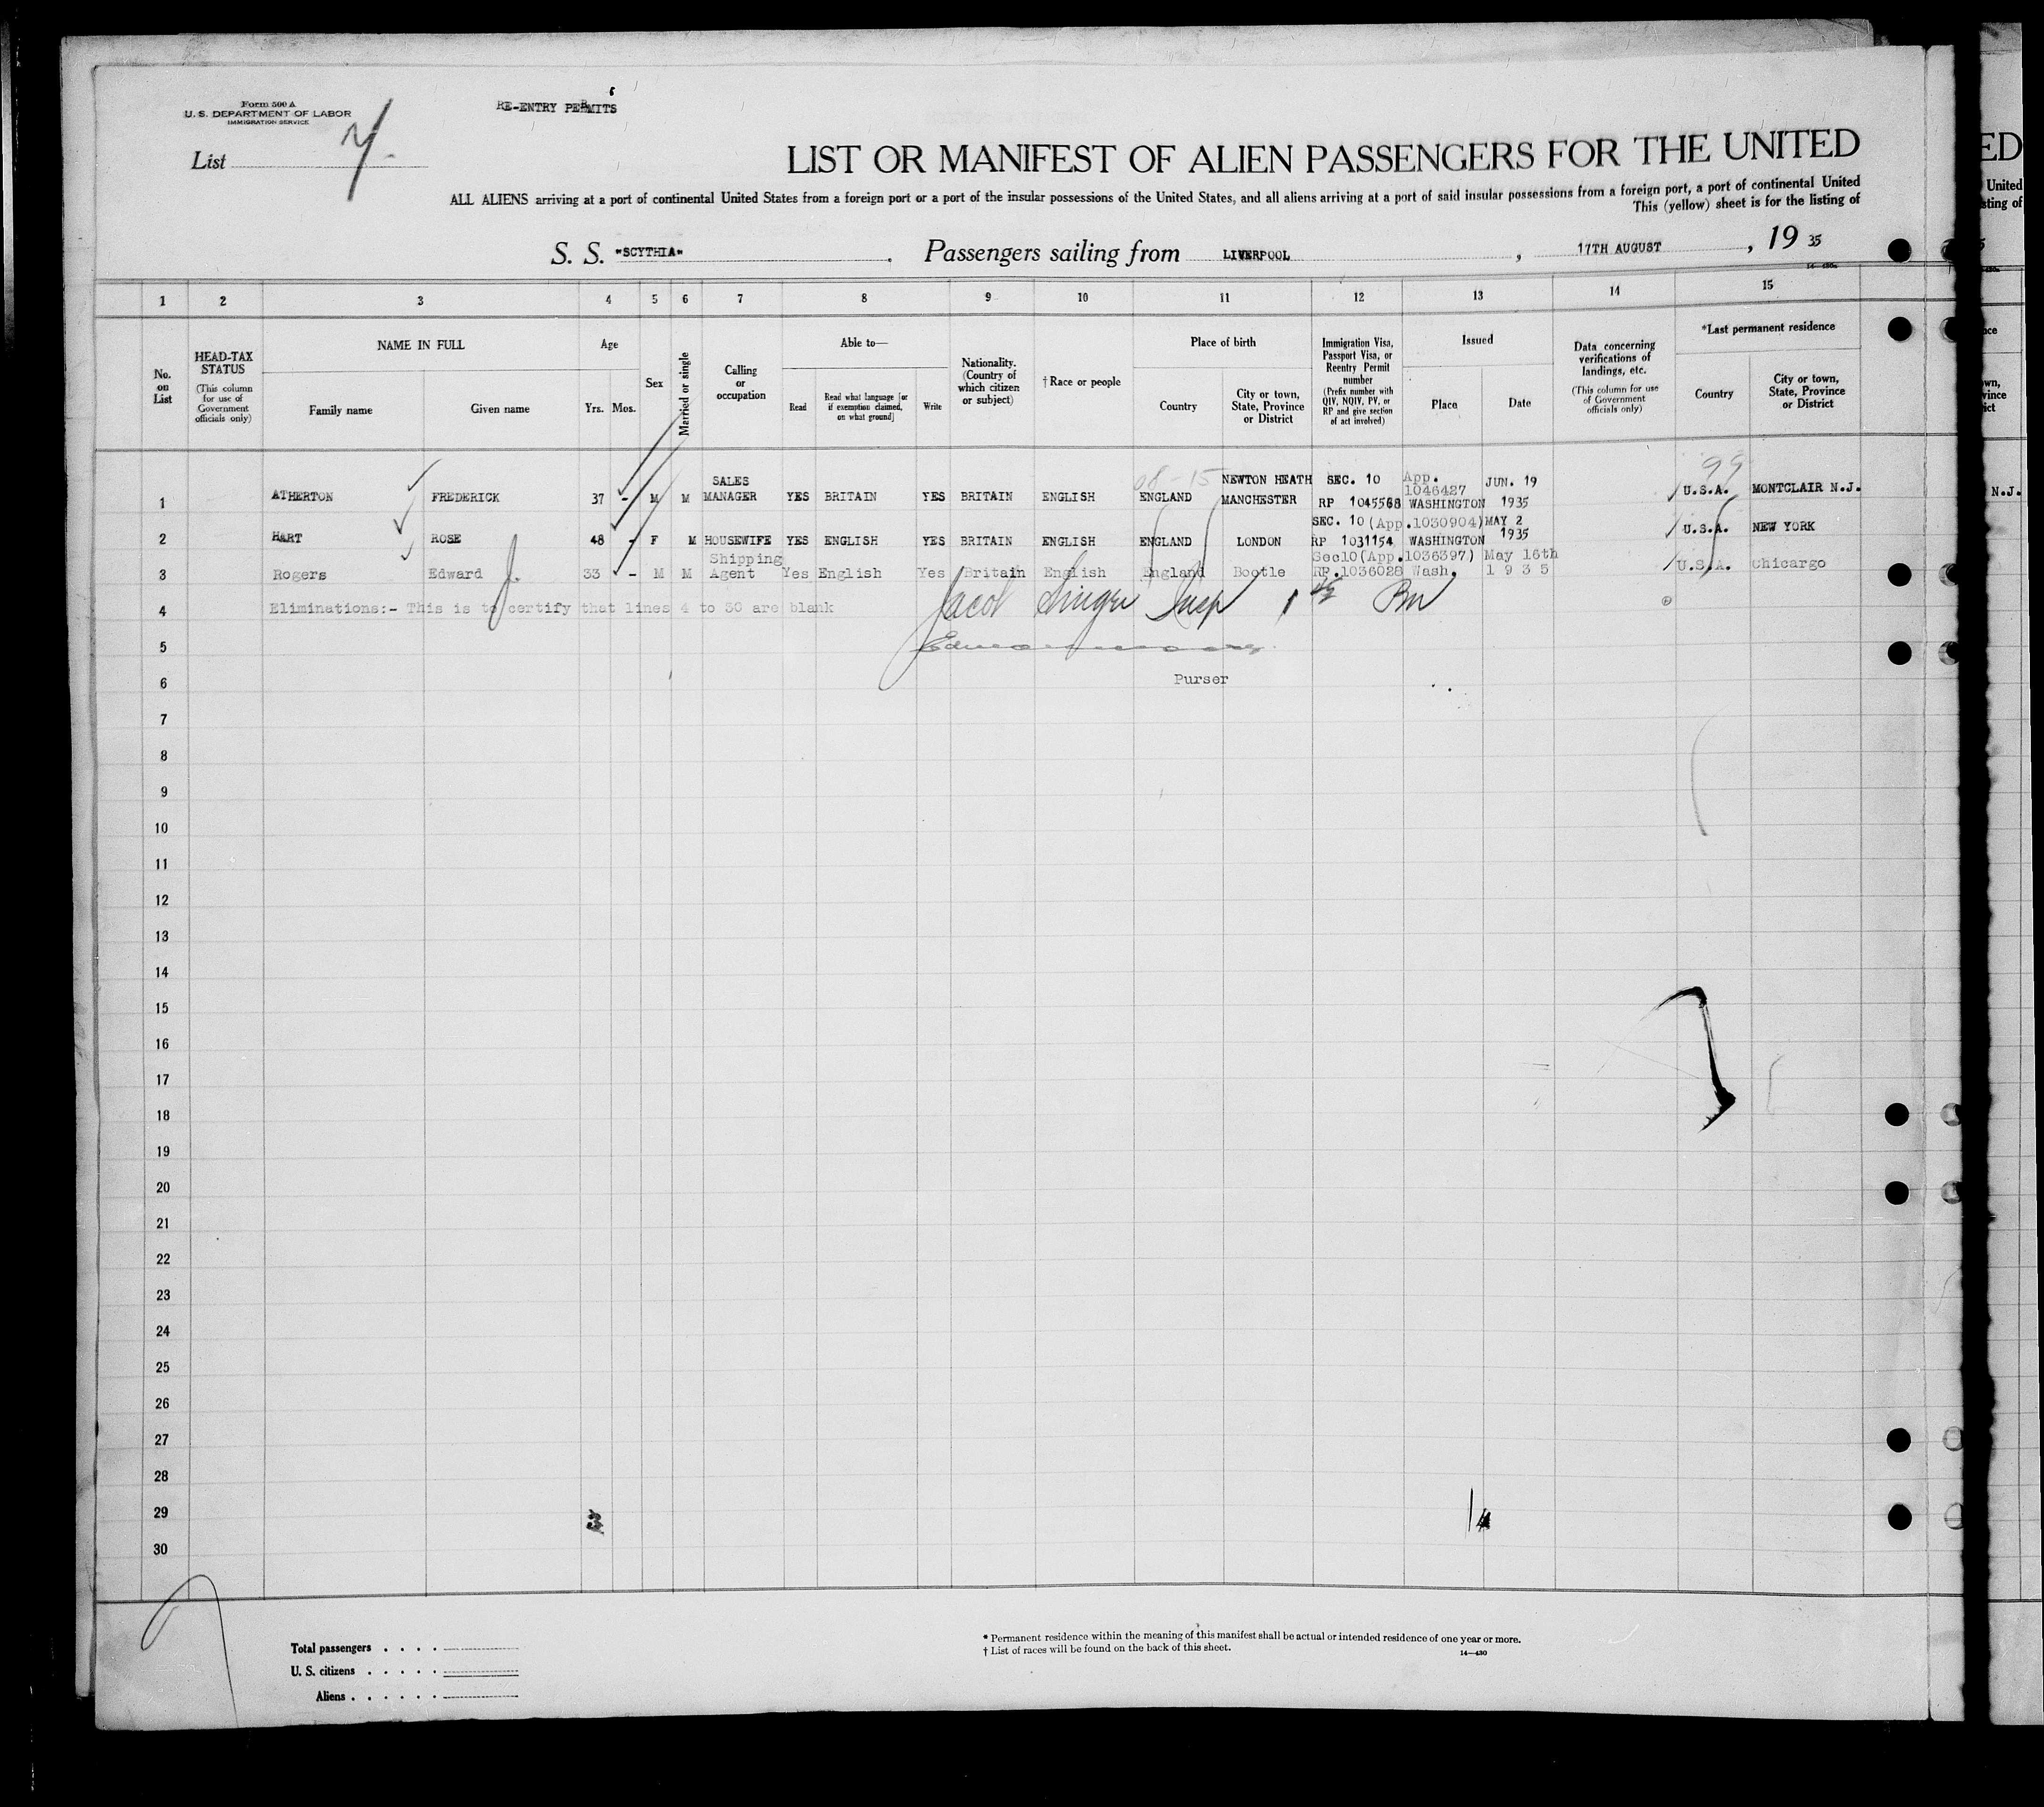 Form 500 A
U. S. DEPARTMENT OF LABOR
IMMIGRATION SERVICE
RE-ENTRY PERMITS
List
LIST OR MANIFEST OF ALIEN PASSENGERS FOR THE UNITED
ALL ALIENS arriving at a port of continental United States from a foreign port or a port of the insular possessions of the United States, and all aliens arriving at a port of said insular possessions from a foreign port, a port of continental United
This (yellow) sheet is for the listing of
S. S. "SCYTHIA". Passengers sailing from LIVERPOOL, 17TH AUGUST, 19 35
1 2 3 4 5 6 7 8 9 10 11 12 13 14 15
No. on List
HEAD-TAX STATUS
(This column for use of Government officials only)
NAME IN FULL
Family name Given name
Age
Yrs. Mos.
Sex
Married or single
Calling or occupation
Able to—
Read
Read what language [or if exemption claimed, on what ground]
Write
Nationality. (Country of which citizen or subject)
† Race or people
Place of birth
Country
City or town, State, Province or District
Immigration Visa, Passport Visa, or Reentry Permit number
(Prefix number with QIV, NQIV, PV, or RP and give section of act involved)
Issued
Place Date
Data concerning verifications of landings, etc.
(This column for use of Government officials only)
*Last permanent residence
Country
City or town, State, Province or District
08-15 99
SALES NEWTON HEATH SEC. 10 App. 1046427 JUN. 19
1 ATHERTON FREDERICK 37 - M M MANAGER YES BRITAIN YES BRITAIN ENGLISH ENGLAND MANCHESTER RP 1045568 WASHINGTON 1935 U.S.A. MONTCLAIR N.J.
SEC. 10 (App.1030904) MAY 2
2 HART ROSE 48 - F M HOUSEWIFE YES ENGLISH YES BRITAIN ENGLISH ENGLAND LONDON RP 1031154 WASHINGTON 1935 U.S.A. NEW YORK
Shipping Sec10(App.1036397) May 16th
3 Rogers Edward J. 33 - M M Agent Yes English Yes Britain English England Bootle RP.1036028 Wash. 1 9 3 5 U.S.A. Chicargo
4 Eliminations:- This is to certify that lines 4 to 30 are blank Jacob Singer Insp
5
6 Purser
7
8
9
10
11
12
13
14
15
16
17
18
19
20
21
22
23
24
25
26
27
28
29 3
30
Total passengers . . . .
U. S. citizens . . . . .
Aliens . . . . . .
* Permanent residence within the meaning of this manifest shall be actual or intended residence of one year or more.
† List of races will be found on the back of this sheet.
14—430
ED
United
sting of
N.J.